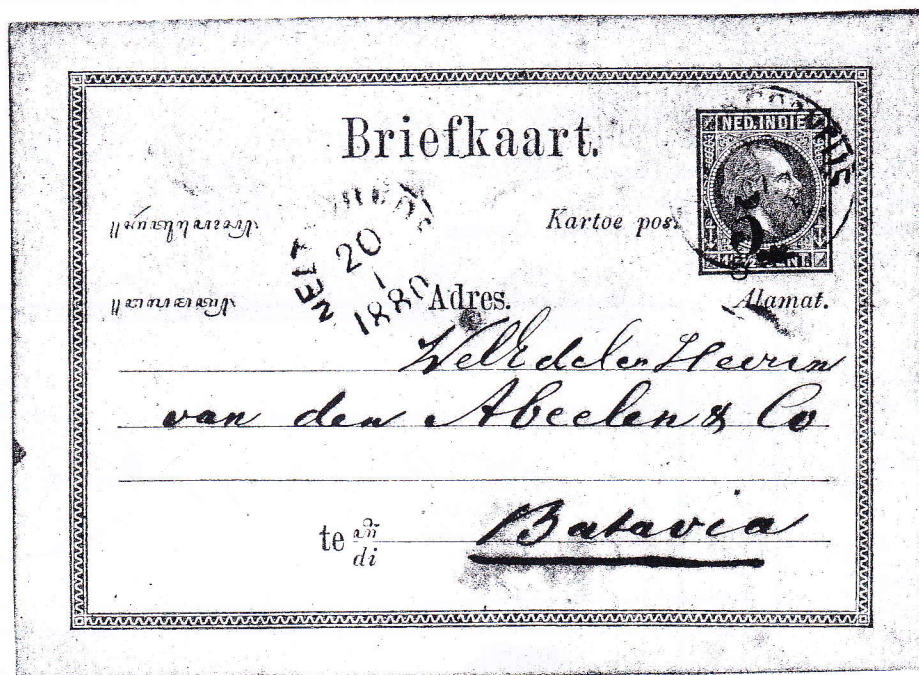 Briefkaart.
NED. INDIE
Kartoe pos.
CENT.
20
1
1880
Adres.
Alamat.
WelEdelen Heeren
van den Abeelen & Co
te
di
Batavia